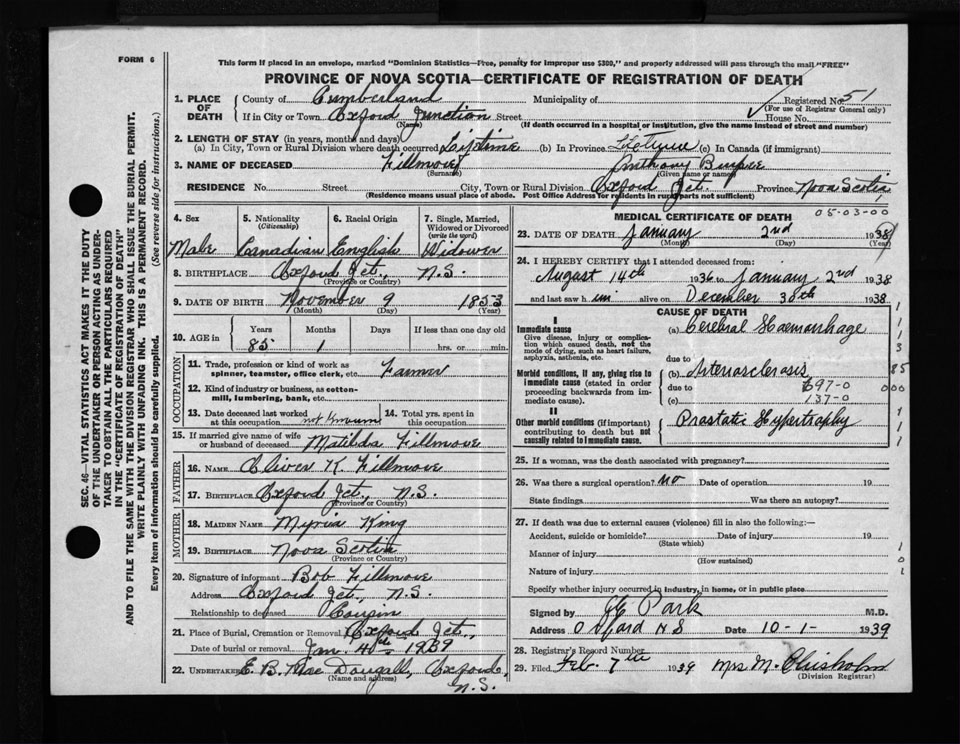 FORM 6
This form if placed in an envelope, marked "Dominion Statistics—Free, penalty for improper use $300," and properly addressed will pass through the mail "FREE"
PROVINCE OF NOVA SCOTIA—CERTIFICATE OF REGISTRATION OF DEATH
SEC. 46—VITAL STATISTICS ACT MAKES IT THE DUTY
OF THE UNDERTAKER OR PERSON ACTING AS UNDER-
TAKER TO OBTAIN ALL THE PARTICULARS REQUIRED
IN THE "CERTIFICATE OF REGISTRATION OF DEATH"
AND TO FILE THE SAME WITH THE DIVISION REGISTRAR WHO SHALL ISSUE THE BURIAL PERMIT.
WRITE PLAINLY WITH UNFADING INK. THIS IS A PERMANENT RECORD.
Every item of information should be carefully supplied. (See reverse side for instructions.)
1. PLACE OF DEATH County of Cumberland Municipality of Registered No. 51
(For use of Registrar General only)
If in City or Town Oxford Junction Street House No.
(Name) (If death occurred in a hospital or institution, give the name instead of street and number)
2. LENGTH OF STAY (in years, months and days)
(a) In City, Town or Rural Division where death occurred Lifetime (b) In Province Lifetime (c) In Canada (if immigrant)
3. NAME OF DECEASED Fillmore Anthony
(Surname) (Given name or names)
RESIDENCE No. Street City, Town or Rural Division Oxford Jct. Province Nova Scotia
(Residence means usual place of abode. Post Office Address for residents in rural parts not sufficient)
4. Sex 5. Nationality (Citizenship) 6. Racial Origin 7. Single, Married, Widowed or Divorced (write the word)
Male Canadian English Widower
8. BIRTHPLACE Oxford Jct., N.S.
(Province or Country)
9. DATE OF BIRTH November 9 1853
(Month) (Day) (Year)
10. AGE in Years Months Days If less than one day old
85 1 hrs. or min.
OCCUPATION
11. Trade, profession or kind of work as spinner, teamster, office clerk, etc. Farmer
12. Kind of industry or business, as cotton-mill, lumbering, bank, etc.
13. Date deceased last worked at this occupation not known 14. Total yrs. spent in this occupation
15. If married give name of wife or husband of deceased Matilda Fillmore
FATHER
16. NAME Oliver K. Fillmore
17. BIRTHPLACE Oxford Jct., N.S.
(Province or Country)
MOTHER
18. MAIDEN NAME King
19. BIRTHPLACE Nova Scotia
(Province or Country)
20. Signature of informant Bob Fillmore
Address Oxford Jct., N.S.
Relationship to deceased Cousin
21. Place of Burial, Cremation or Removal Oxford Jct.,
Date of burial or removal Jan. 4th 1939
22. UNDERTAKER E. B. Mac Dougall, Oxford, N.S.
(Name and address)
MEDICAL CERTIFICATE OF DEATH
05-03-00
23. DATE OF DEATH January 2nd 1938
(Month) (Day) (Year)
24. I HEREBY CERTIFY that I attended deceased from:
August 14th 1936 to January 2nd 1938
and last saw him alive on December 30th 1938
CAUSE OF DEATH
I
Immediate cause (a) Cerebral Haemorrhage
Give disease, injury or complication which caused death, not the mode of dying, such as heart failure, asphyxia, asthenia, etc.
due to
Morbid conditions, if any, giving rise to immediate cause (stated in order proceeding backwards from immediate cause). (b) Arteriosclerosis
due to 97-0
(c) 137-0
II
Other morbid conditions (if important) contributing to death but not causally related to immediate cause. Prostatic Hypertrophy
25. If a woman, was the death associated with pregnancy?
26. Was there a surgical operation? no Date of operation 19
State findings Was there an autopsy?
27. If death was due to external causes (violence) fill in also the following:—
Accident, suicide or homicide? Date of injury 19
(State which)
Manner of injury
(How sustained)
Nature of injury
Specify whether injury occurred in industry, in home, or in public place
Signed by Park M.D.
Address Oxford N S Date 10-1- 1939
28. Registrar's Record Number
29. Filed Feb. 7th 1939 Mrs M. Chisholm
(Division Registrar)